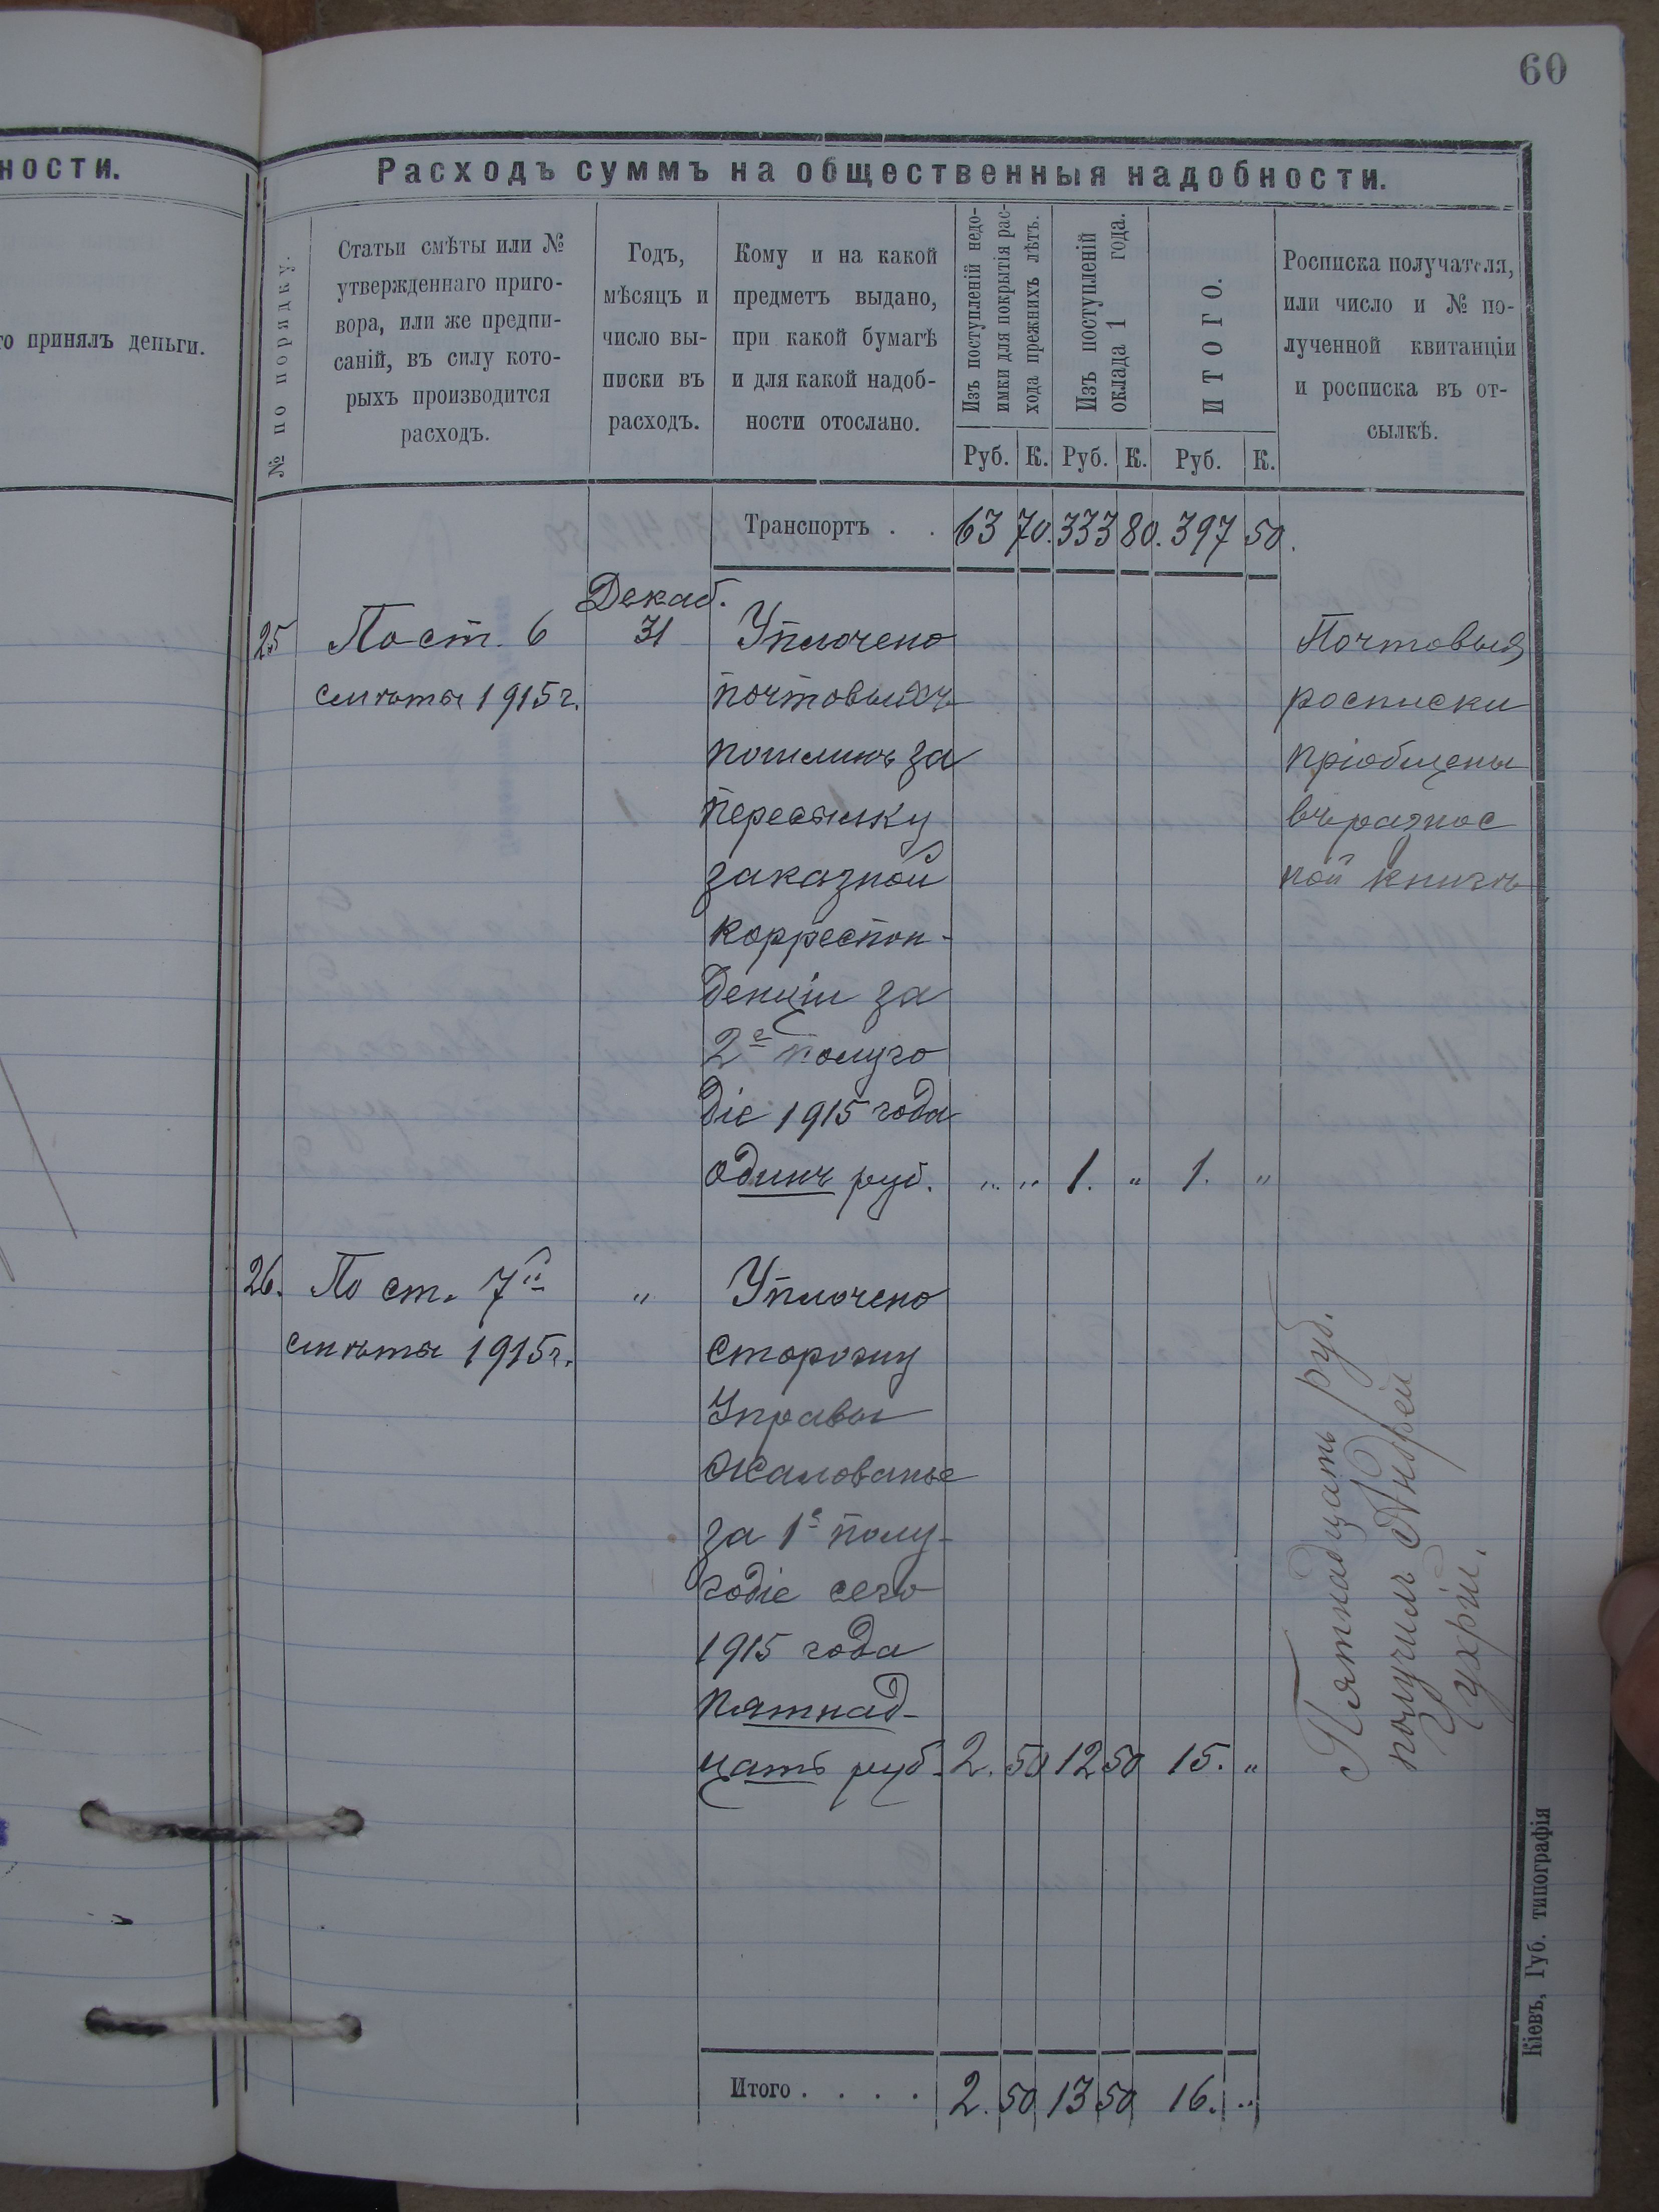 60
ности.
го принялъ деньги.
Расходъ суммъ на общественныя надобности.
№ по порядку.
Статьи смѣты или №
утвержденнаго приго-
вора, или же предпи-
саній, въ силу кото-
рыхъ производится
расходъ.
Годъ,
мѣсяцъ и
число вы-
писки въ
расходъ.
Кому и на какой
предметъ выдано,
при какой бумагѣ
и для какой надоб-
ности отослано.
Изъ поступленій недо-
имки для покрытія рас-
хода прежнихъ лѣтъ.
Изъ поступленій
оклада 1 года.
ИТОГО.
Росписка получателя,
или число и № по-
лученной квитанціи
и росписка въ от-
сылкѣ.
Руб. К. Руб. К. Руб. К.
Транспортъ . . 63 70. 333 80. 397 50.
Декаб.
25 По ст. 6 31 Уплочено
смѣты 1915 г. почтовыхъ
пошлинъ за
пересылку
заказной
корреспон-
денціи за
2е полуго
діе 1915 года
одинъ руб. „ „ 1. „ 1. „
Почтовыя
росписки
пріобщены
въ разнос
ной книгѣ
26. По ст. 7й „ Уплочено
смѣты 1915 г. сторожу
Управы
жалованье
за 1е полу-
годіе сего
1915 года
пятнад-
цать руб. 2. 50 12 50 15. „
Пятнадцать руб.
получилъ Андрей
Итого . . . . 2. 50 13 50 16. „
Кіевъ, Губ. типографія